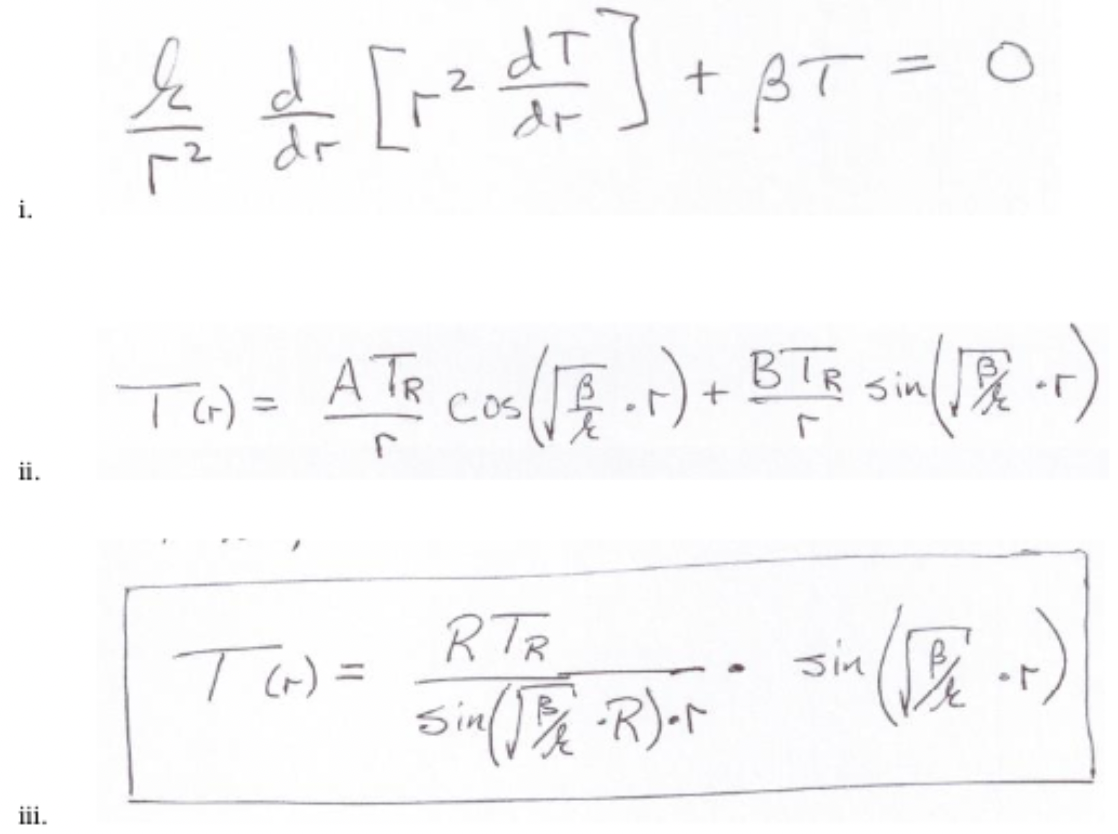 i. k/r² d/dr [r² dT/dr] + βT = 0
ii. T(r) = A T_R/r cos(√(β/k) · r) + B T_R/r sin(√(β/k) · r)
iii. T(r) = R T_R/(sin(√(β/k) · R) · r) · sin(√(β/k) · r)